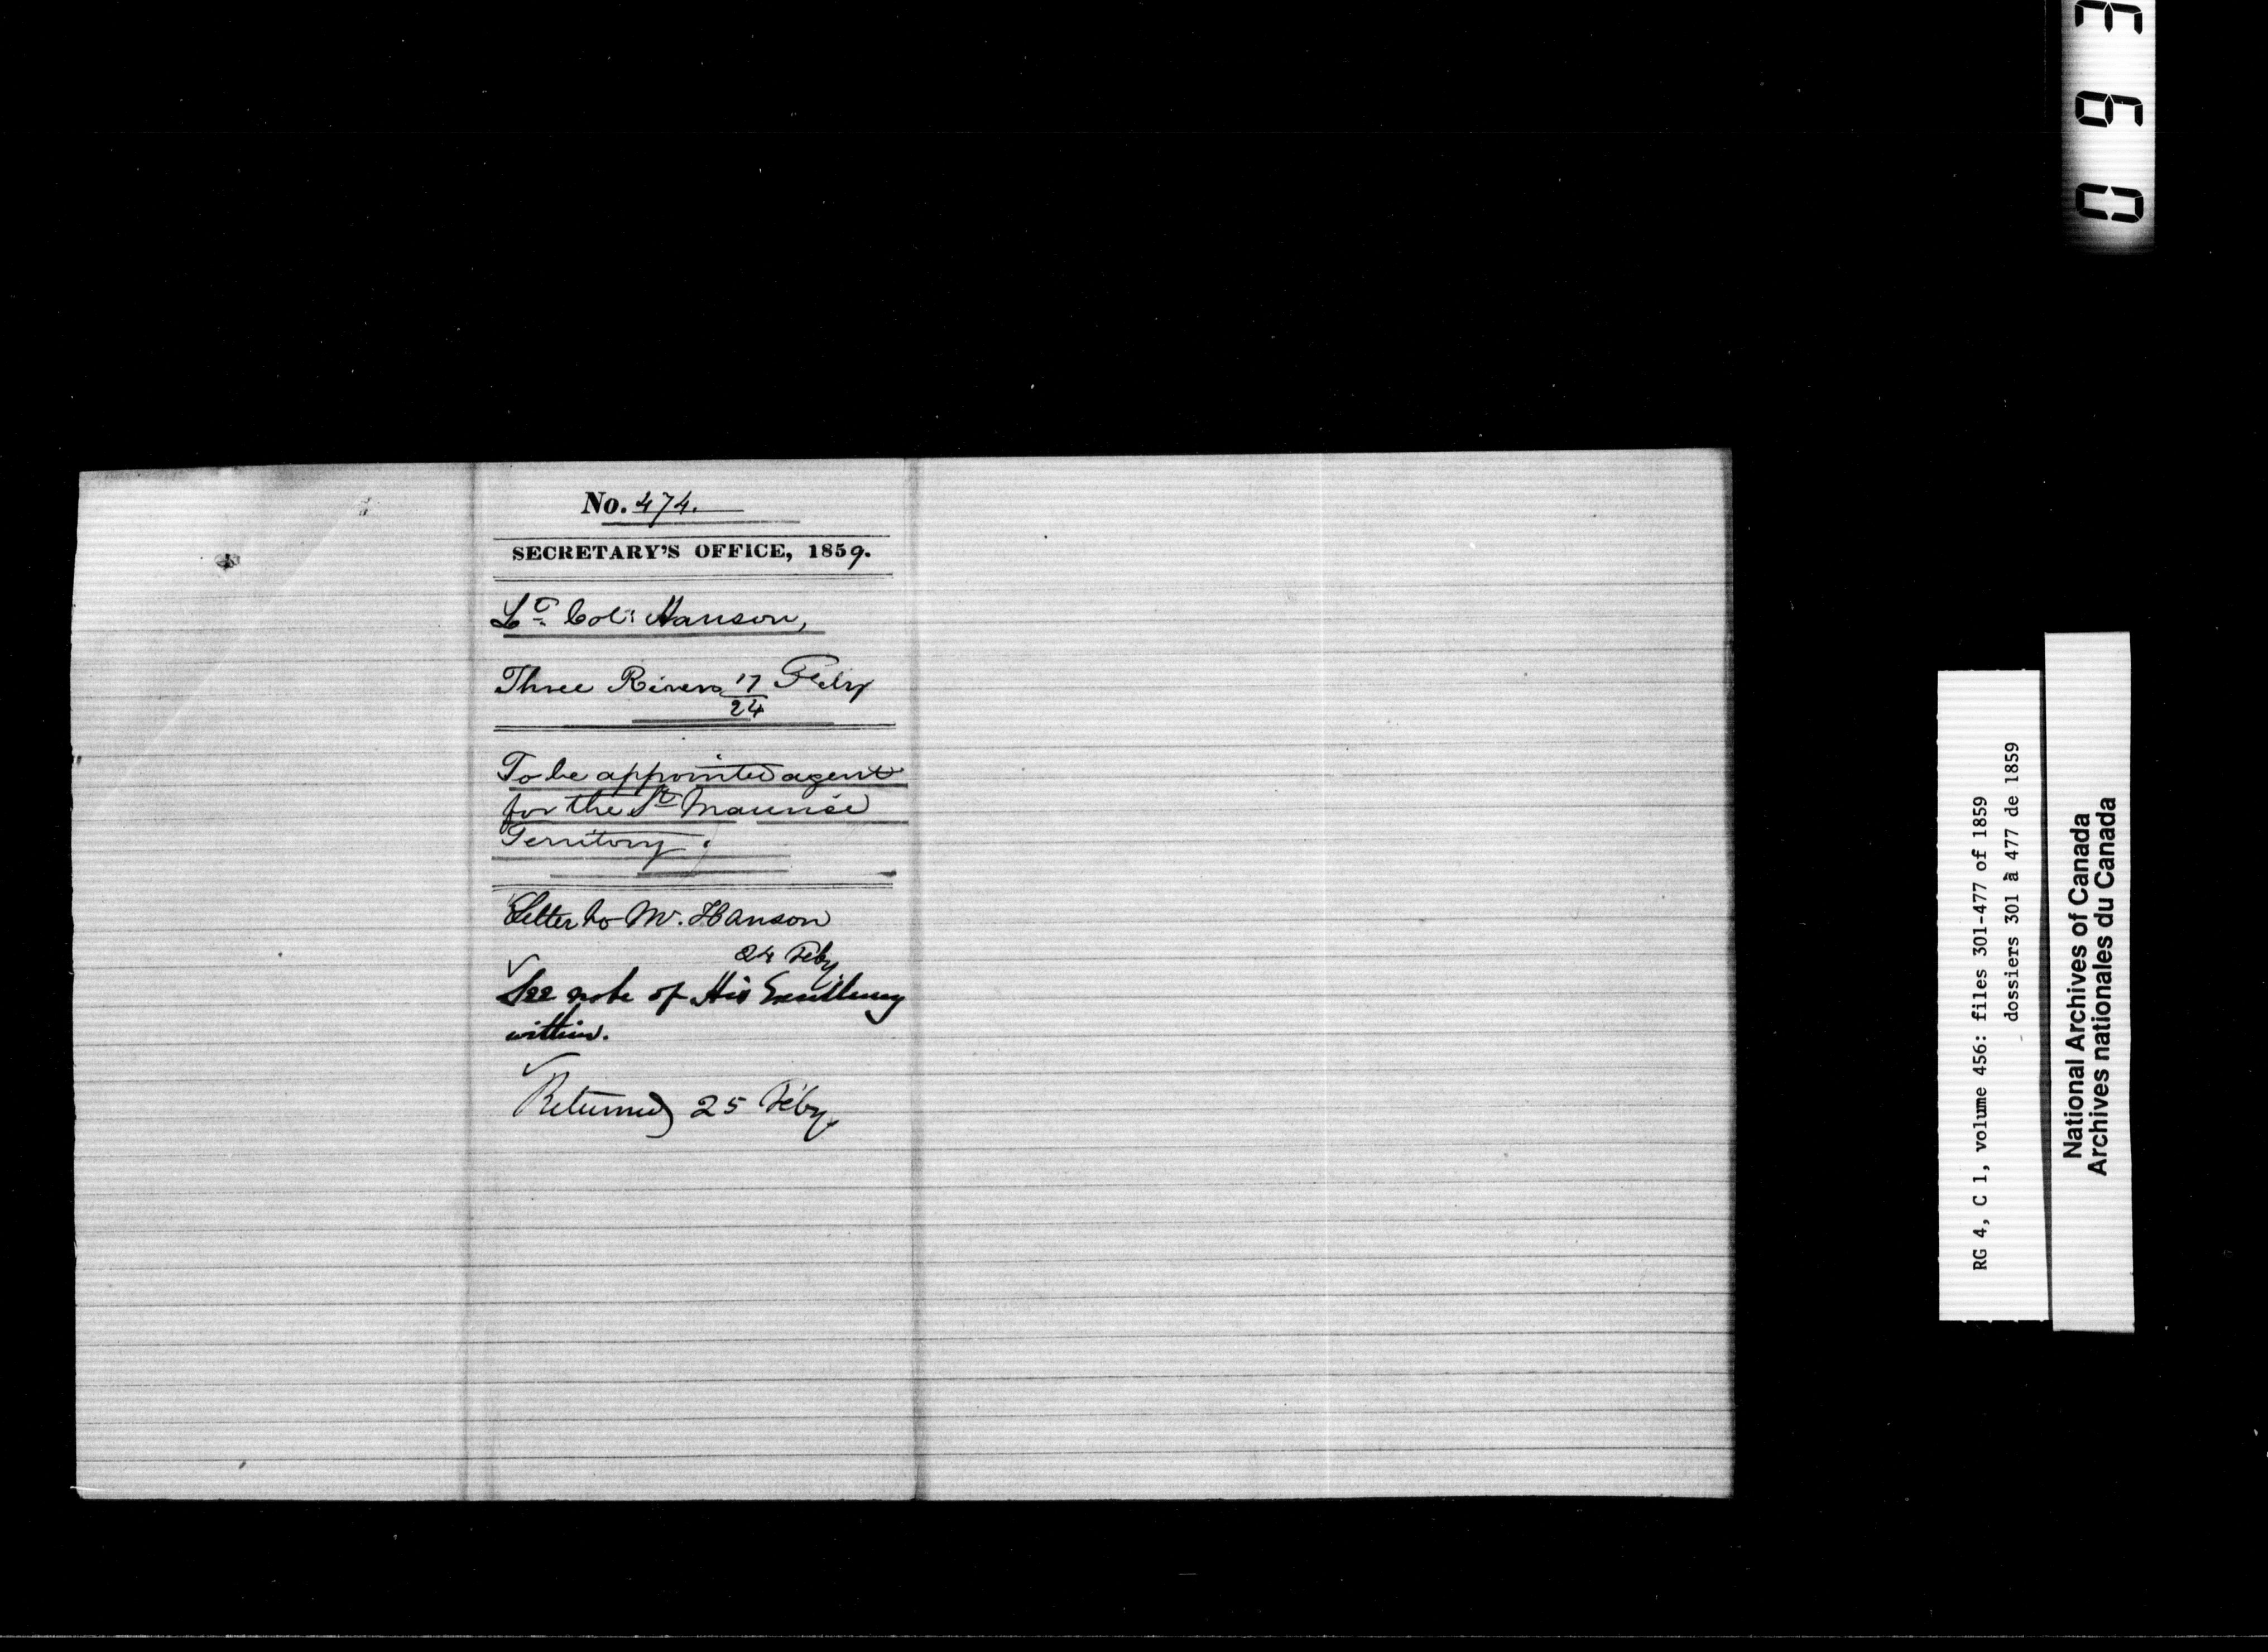 No. 474.
SECRETARY'S OFFICE, 1859.
Lt. Col: Hanson,
Three Rivers 17 Feby
24
To be appointed agent
for the St Maurice
Territory.
Letter to Mr. Hanson
24 Feby
See note of His Excellency
within.
Returned 25 Feby.
RG 4, C 1, volume 456: files 301-477 of 1859
dossiers 301 à 477 de 1859
National Archives of Canada
Archives nationales du Canada